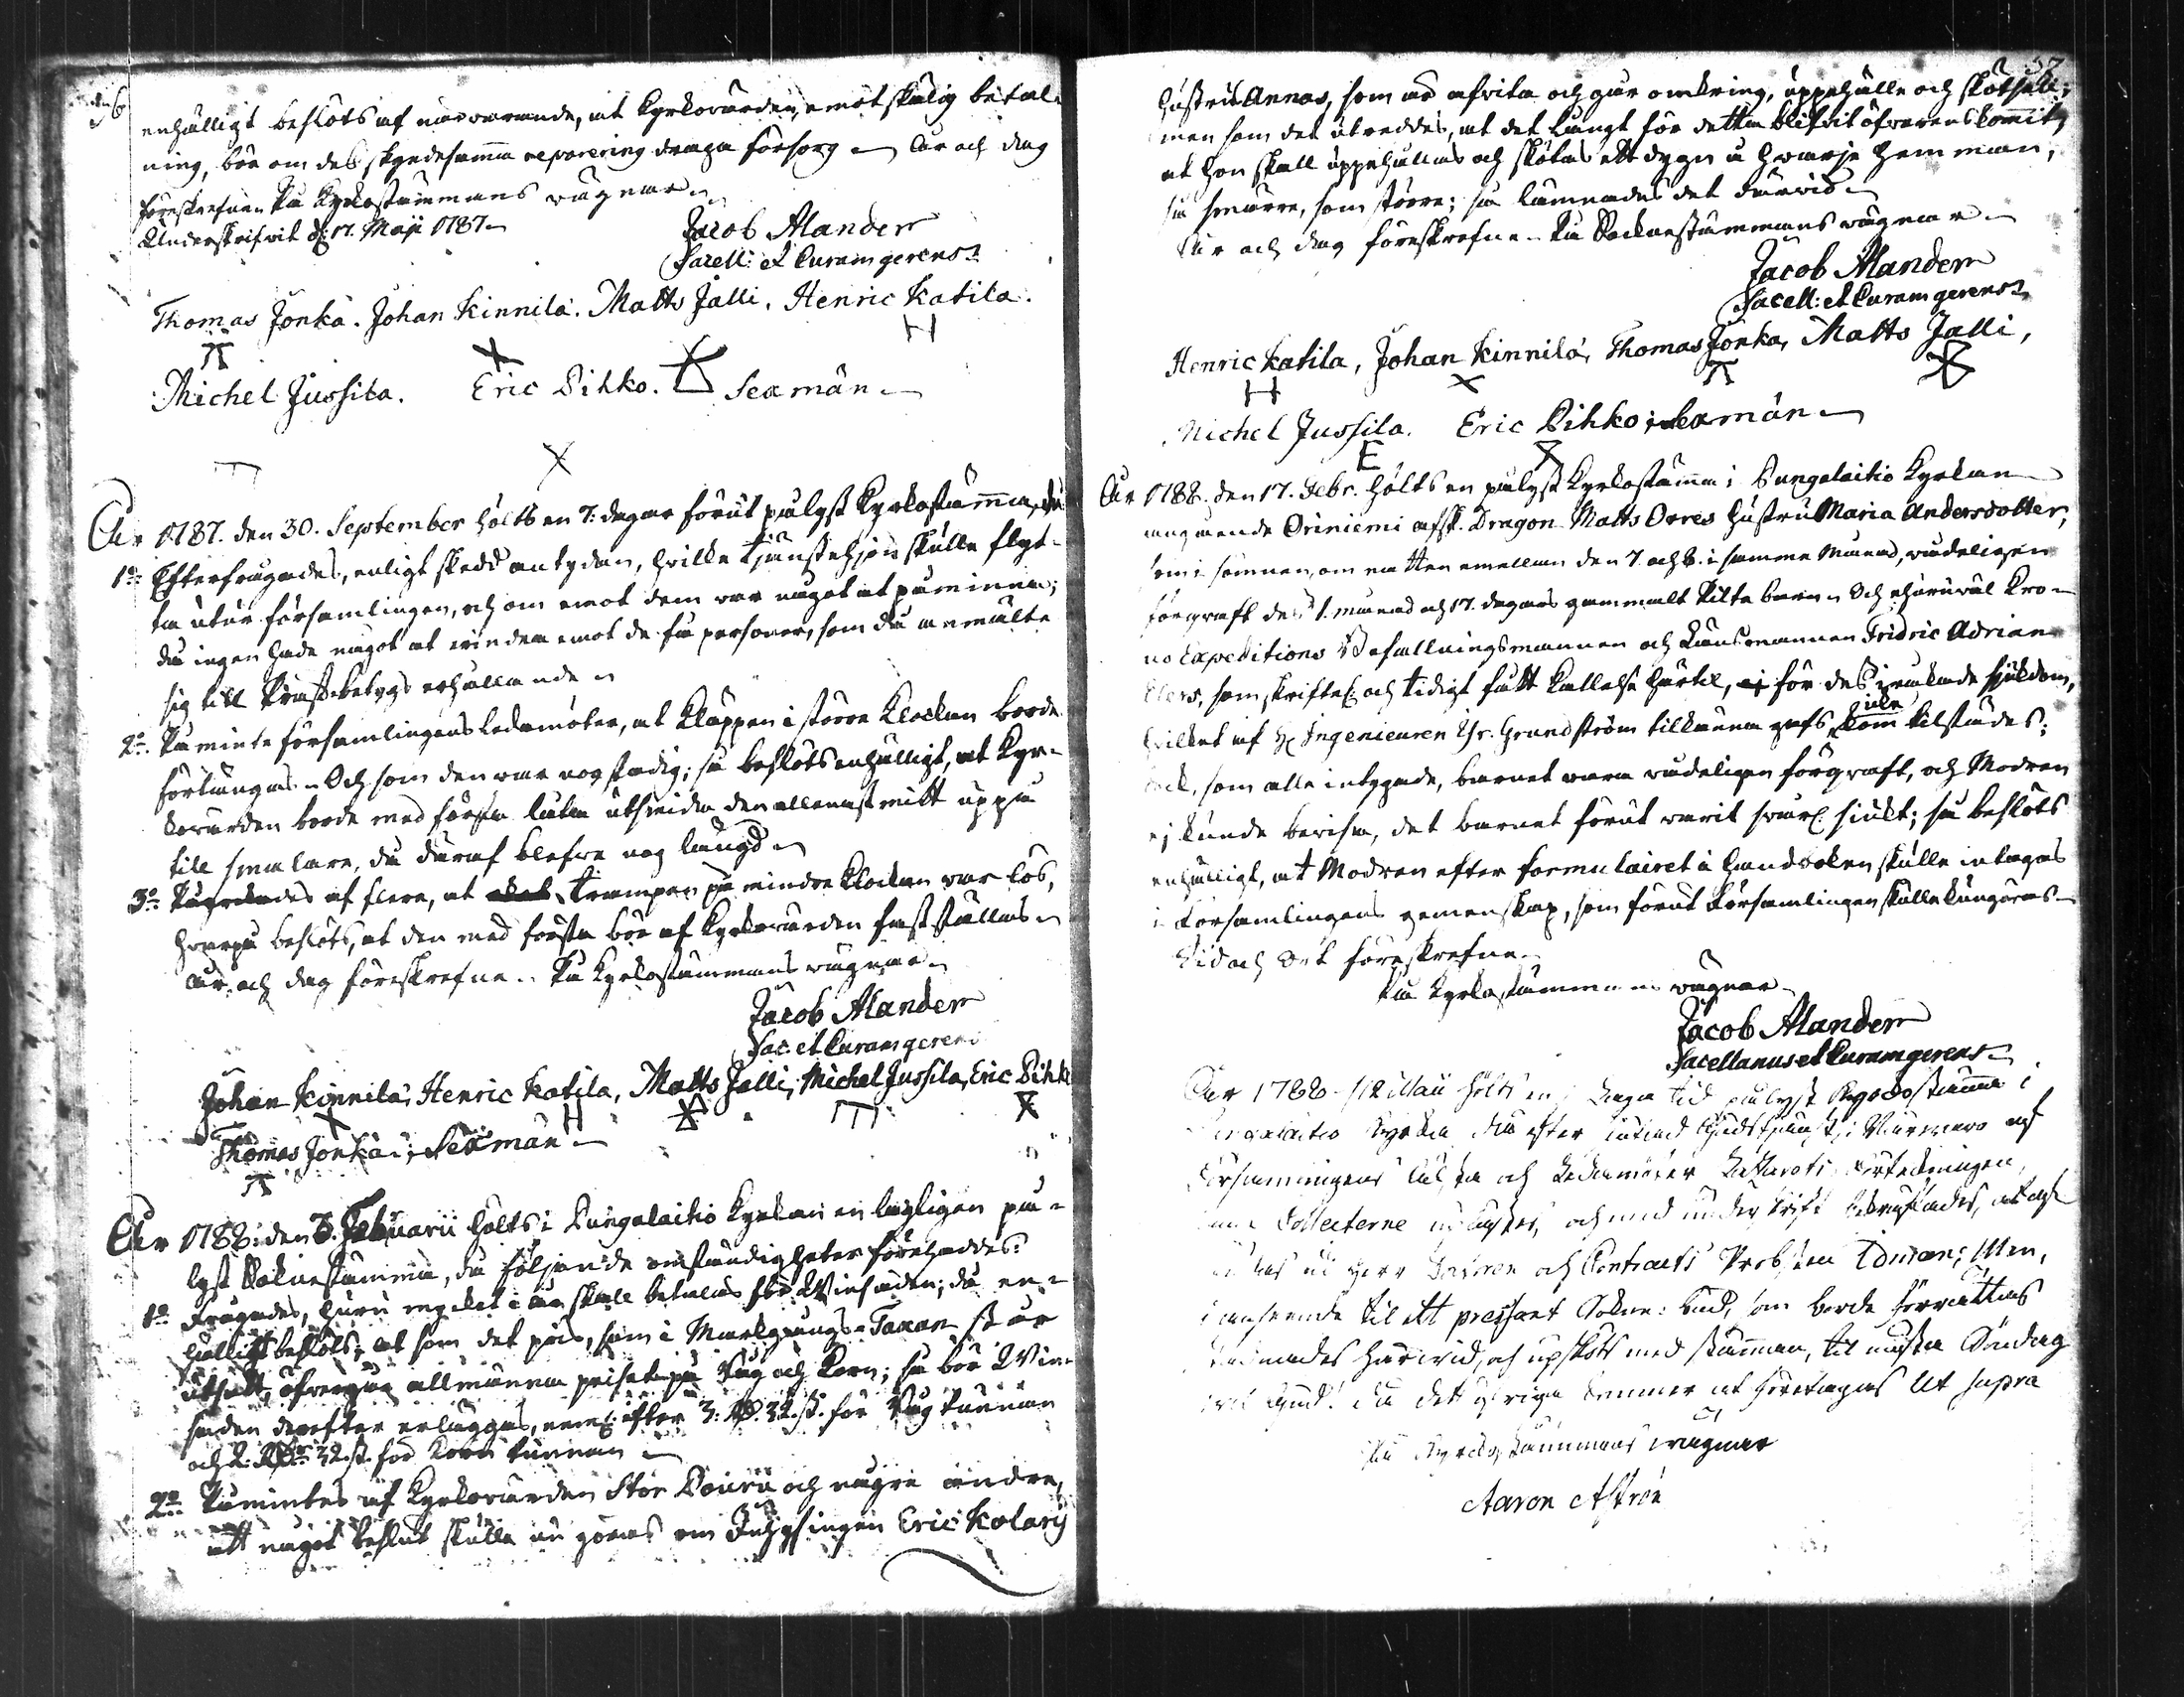 36
enhälligt beslöts af närvarande, at Kyrkovärden, emot skälig betal-
ning, bör om dess skyndesamma reparering draga försorg. År och dag
föreskrefne. På Kyrkostämmans vägnar.
Underskrifvit d: 17. Maji 1787.
Jacob Alander
Sacell: et Curam gerens.
Thomas Jonka. Johan Kinnila. Matts Jalli. Henric Katila.
H
Michel Jussila. Eric Pihko. Sexmän.
År 1787. den 30. September hölts en 7: dagar förut pålyst Kyrkostämma, då
1o: Efterfrågades, enligt skedd antydan, hvilke tjenstehjon skulle flyt-
ta utur församlingen, och om emot dem var något at påminna;
då ingen hade något at invända emot de få personer, som då anmälte
sig till Prästbetygs erhållande.
2o: Påminte församlingens ledamöter, at Kläppen i större Klockan borde
förlängas. Och som den var nog stadig; så beslöts enhälligt, at Kyr-
kovärden borde med första låta utsmida den allenast mitt uppå
till smalare, då däraf blefve nog längd.
3o: Påyrkades af flere, at trampan på mindre Klockan var lös,
hvarpå beslöts, at den med första bör af Kyrkovärden fastställas.
År och dag föreskrefne. På Kyrkostämmans vägnar.
Jacob Alander
Sac: et Curam gerens
Johan Kinnila, Henric Katila, Matts Jalli, Michel Jussila, Eric Pihk
H
Thomas Jonka; Sexmän.
År 1788: den 3. Februarii hölts i Pungalaitio Kyrkan en lagligen på-
lyst Soknestämma, då följande omständigheter förehaddes:
1o Frågades, huru mycket i år skall betalas för Vinsäden; då en-
hälligt beslöts; at som det pris, som i Markgångs-Taxan är
utsatt, öfvergår allmänna priset på Råg och Korn; så bör Vin-
säden derefter erläggas, neml: efter 3: Rd. 32. sk. för Råg tunnan
och 2. Rd: 32. sk. för Korn tunnan.
2o: Påmintes af Kyrkovärden Stor Pouru och några andra,
att något beslut skulle nu göras om Inhysingen Eric Kolarij
37
hustru Annas, som är afvita och går omkring, uppehälle och skötsel;
men som det utreddes, at det längt för detta blifvit öfverenskommit,
at hon skall uppehållas och skötas ett dygn i hvarje hemman,
så smärre, som större; så lämnades det därvid.
År och dag föreskrefne. På Soknestämmans vägnar.
Jacob Alander
Sacell: et Curam gerens.
Henric Katila, Johan Kinnila, Thomas Jonka, Matts Jalli,
H
Michel Jussila. Eric Pihko; Sexmän.
E
År 1788. den 17. Febr. hölts en pålyst Kyrkostämma i Pungalaitio Kyrkan
angående Oriniemi afsk. Dragon Matts Orres hustru Maria Andersdotter,
som i sömnen, om natten emellan den 7. och 8. i samma Månad, vådeligen
förqvaft dess 1. månad och 17. dagars gammalt Pilte barn. Och ehuruväl Kro-
no Expeditions Befallningsmannen och Länsmannen Fridric Adrian
Elers, som skriftel: och tidigt fått kallelse härtil, för des iråkade sjukdom,
hvilket af H: Ingenieuren Chr. Grundström tillkänna gafs, icke kom tilstädes;
dock, som alla intygade, barnet vara vådeligen förqvaft, och Modren
ej kunde bevisa, det barnet förut varit svårl: siukt; så beslöts
enhälligt, at Modren efter formulairet i handboken skulle intagas
i Församlingens gemenskap, som förut Församlingen skulle kungöras.
Tid och Ort föreskrefne.
På Kyrkostämmans vägnar.
Jacob Alander
Sacellanus et Curam gerens
År 1788. Maii hölts en i laga tid pålyst Kyrkostämma i
Kyrka då efter
Församlingens och Ledamöter
Collecterne och med
Herr och Contracts Probsten Edman; Men,
i anseende til ett pressant Sokne: bud, som borde förrättas
lämnades härvid, och upsköts med stämman, til nästa Söndag
Gud! då det öfriga kommer at företagas Ut supra
På Kyrkostämmans vägnar
Aaron Aström